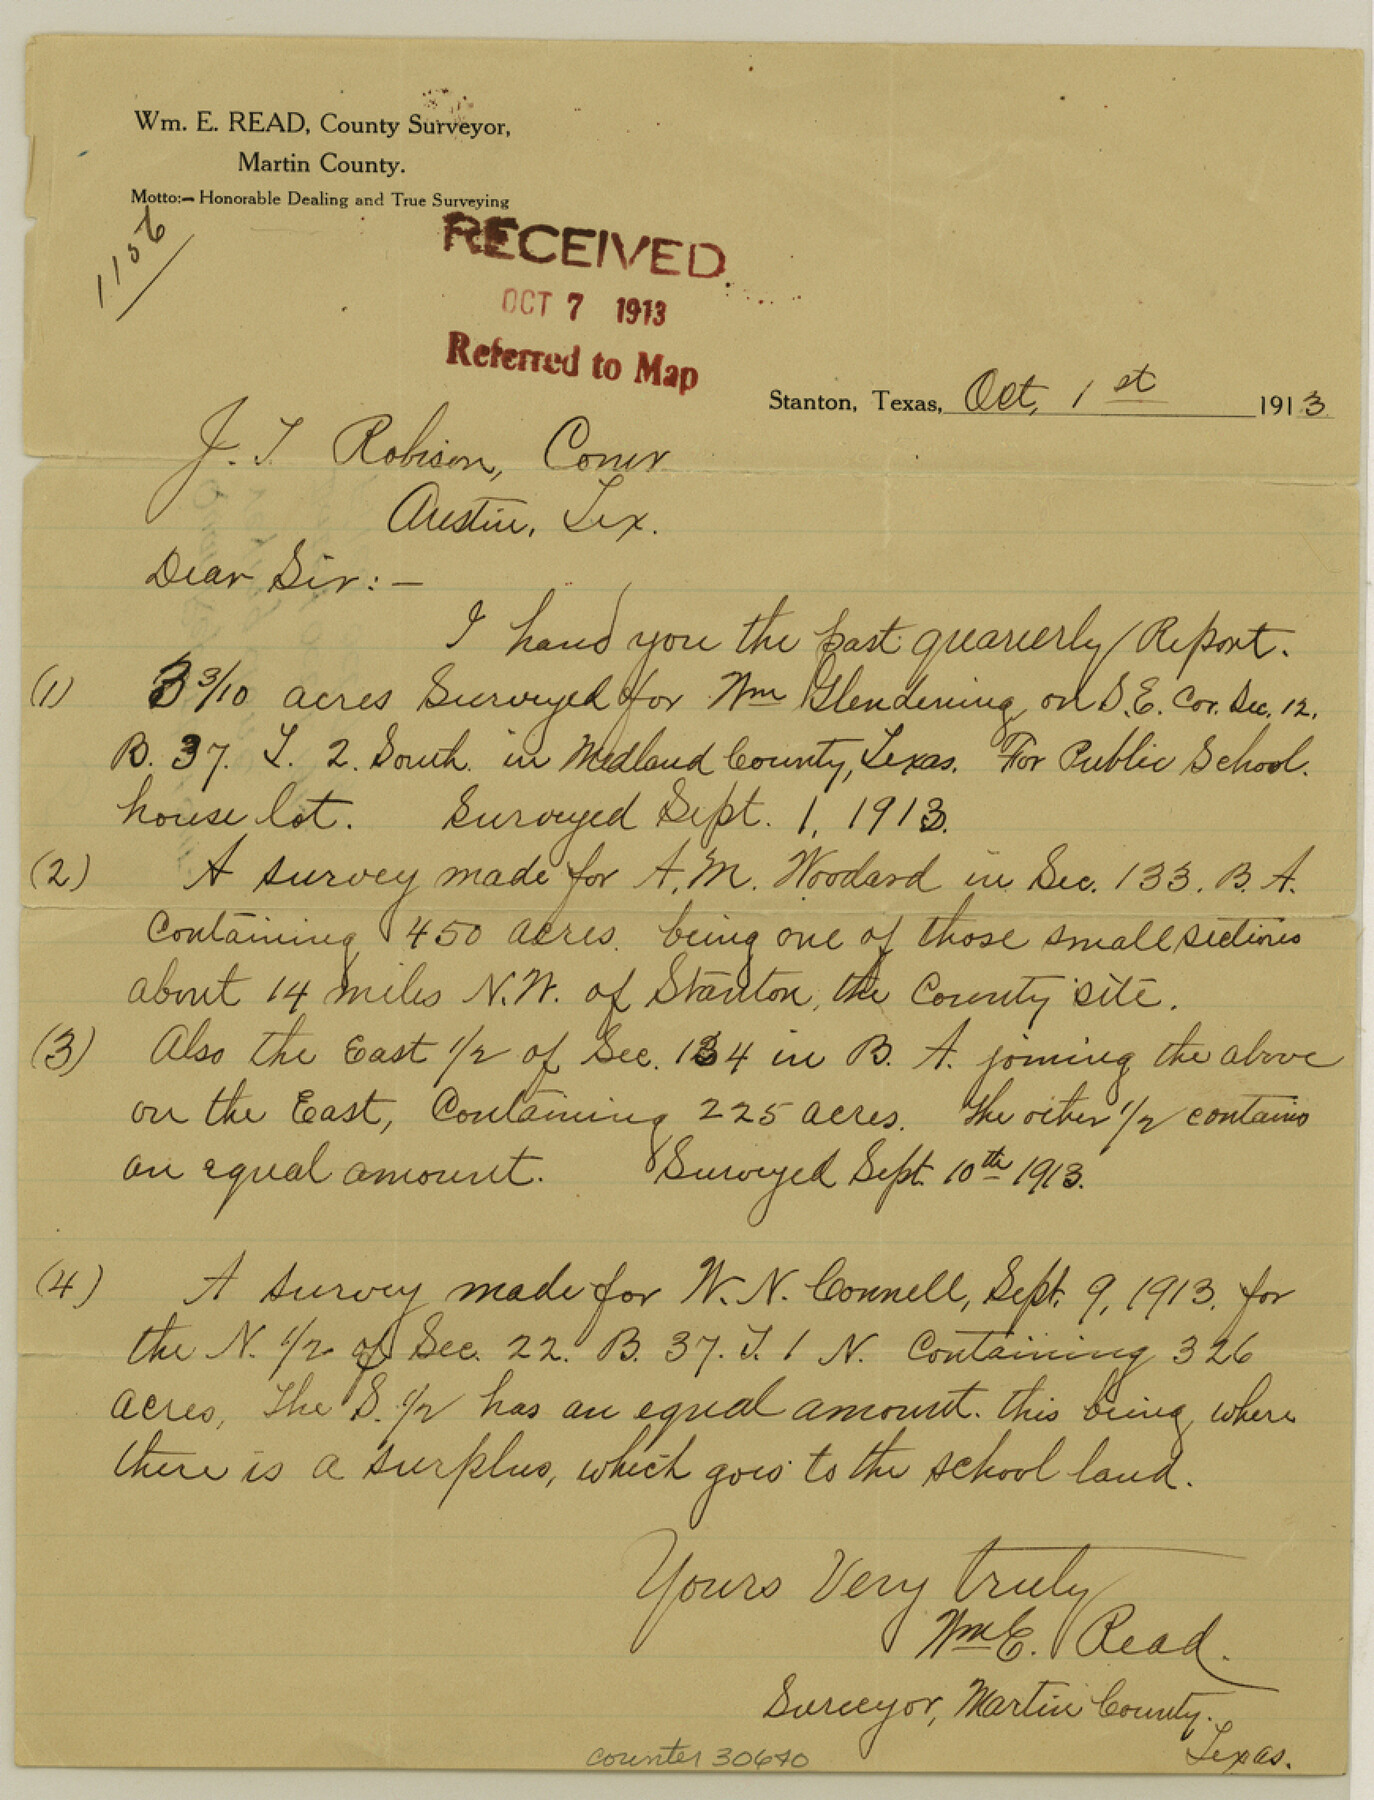 Wm. E. READ, County Surveyor,
Martin County.
Motto:— Honorable Dealing and True Surveying
1156
RECEIVED
OCT 7 1913
Referred to Map
Stanton, Texas, Oct, 1st 1913
J. T. Robison, Comr
Austin, Tex.
Dear Sir:—
I hand you the past quarterly Report.
(1) 3 3/10 acres Surveyed for Wm Glendening, on S.E. Cor. Sec. 12.
B. 37. T. 2. South. in Midland County, Texas. For Public School.
house lot. Surveyed Sept. 1, 1913.
(2) A survey made for A. M. Woodard in Sec. 133. B. A.
Containing 450 acres. being one of those small sections
about 14 miles N.W. of Stanton, the County site.
(3) Also the East 1/2 of Sec. 134 in B. A. joining the above
on the East, Containing 225 acres. The other 1/2 contains
an equal amount. Surveyed Sept. 10th 1913.
(4) A survey made for W. N. Connell, Sept. 9, 1913. for
the N. 1/2 of Sec. 22. B. 37. T. 1 N. Containing 326
acres, The S. 1/2 has an equal amount. this being, where
there is a surplus, which goes to the school land.
Yours Very truly
Wm E. Read.
Surveyor, Martin County.
Texas.
counter 30640